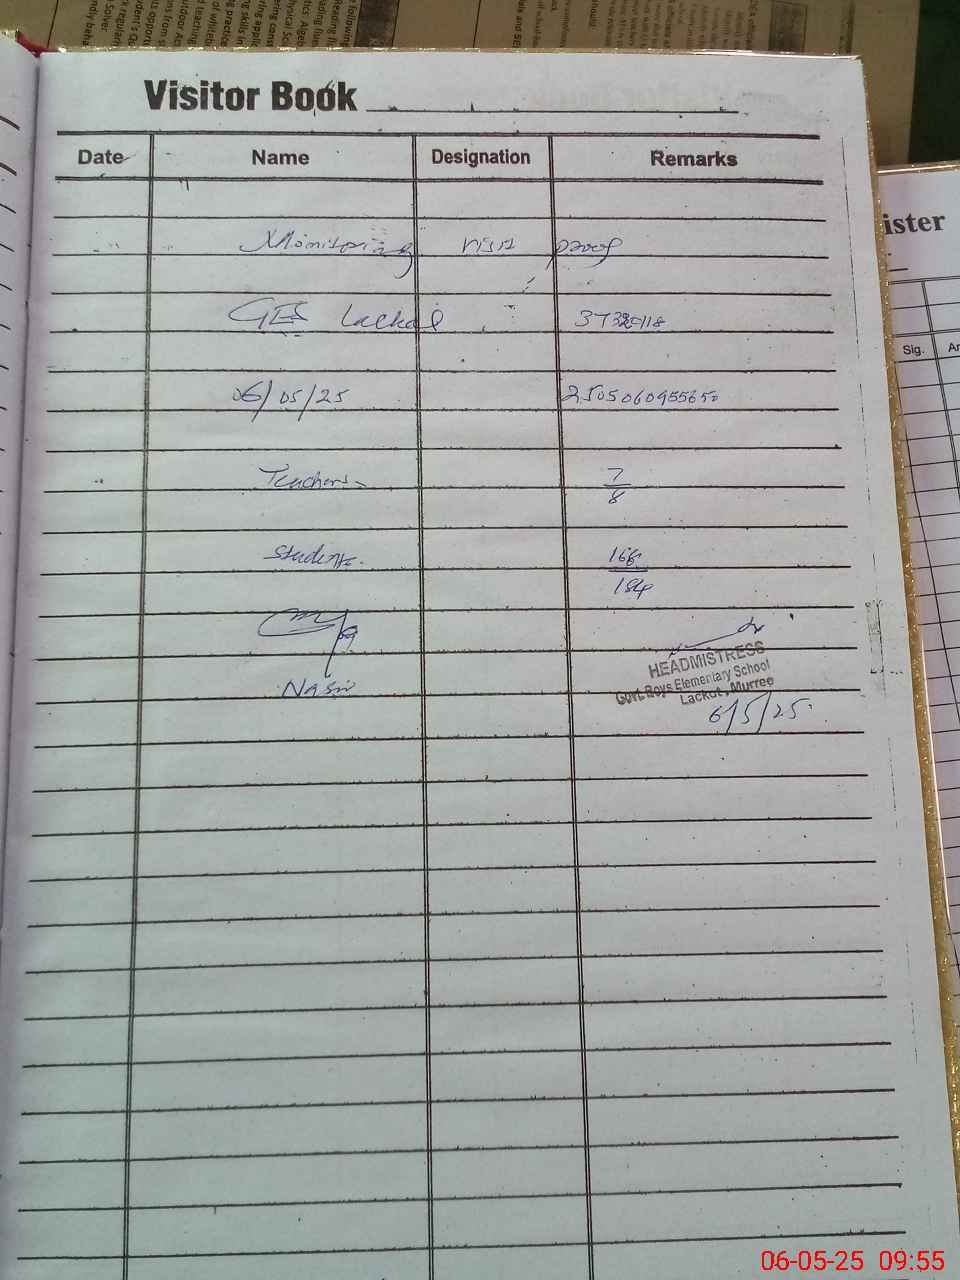 Visitor Book
Date Name Designation Remarks
Monitoring visit proof
GES Lackot
06/05/25 2505060955650
Teachers 7/8
Students 166/184
Nasir
HEADMISTRESS
Govt. Boys Elementary School
Lackot, Murree
6/5/25
ister
Sig.
06-05-25 09:55